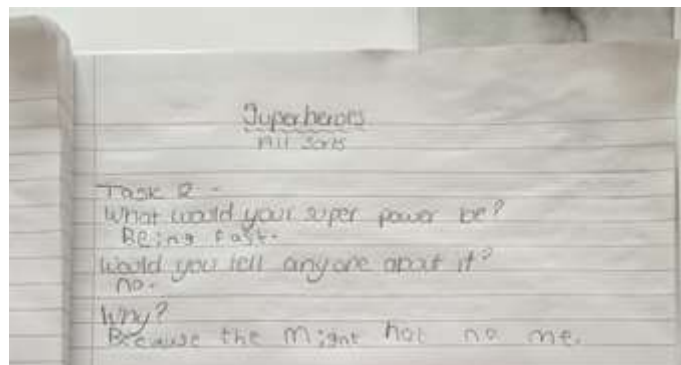 Superheroes
All Sorts
Task 2 -
What would your super power be?
Being fast.
Would you tell anyone about it?
no.
Why?
Because the might not no me.